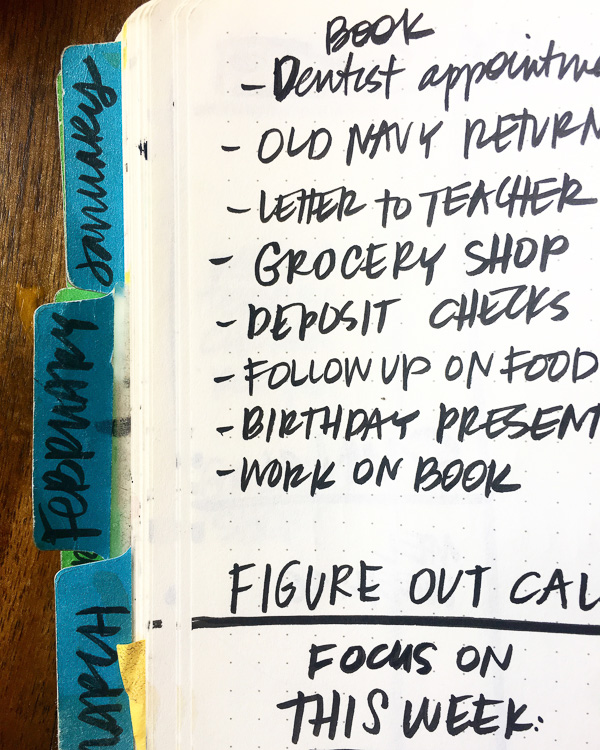 BOOK
- Dentist appointm
- OLD NAVY RETURN
- LETTER to TEACHER
- GROCERY SHOP
- DEPOSIT CHECKS
- FOLLOW UP ON FOOD
- BIRTHDAY PRESENT
- WORK ON BOOK
FIGURE OUT CAL
FOCUS ON
THIS WEEK:
January
FEBRUARY
MARCH